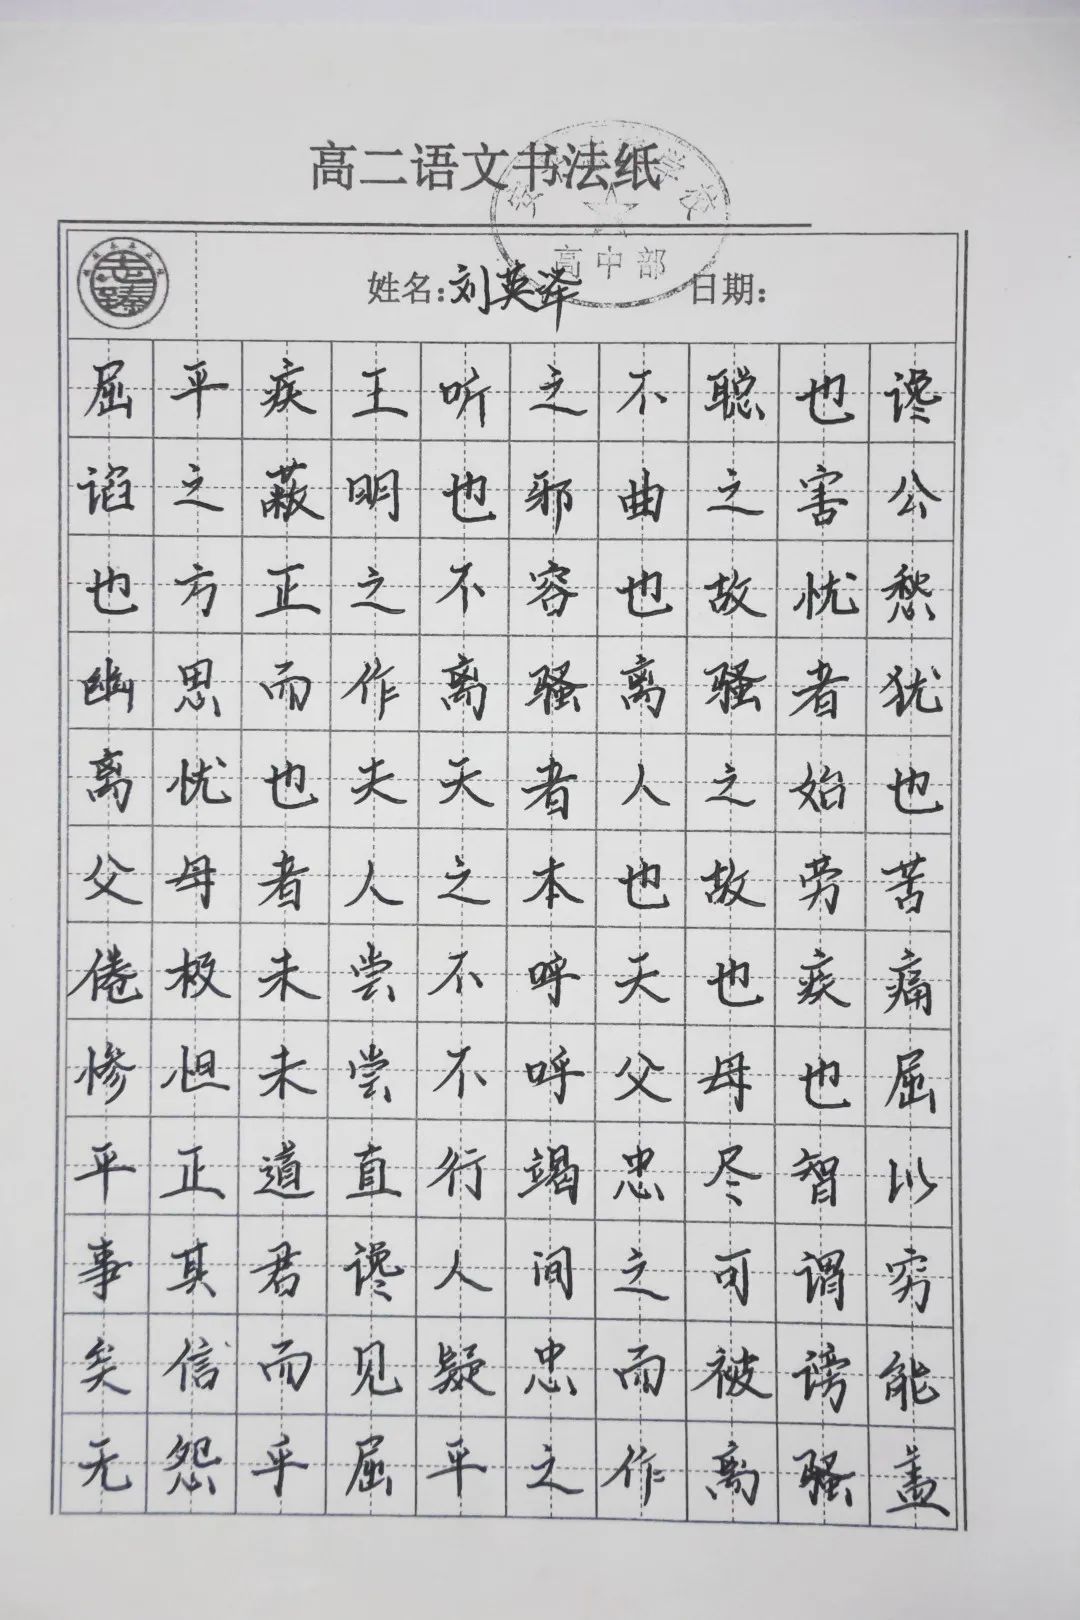 高二语文书法纸
学校
高中部
姓名:刘英泽 日期:
屈平疾王听之不聪也谗
谄之蔽明也邪曲之害公
也方正之不容也故忧愁
幽思而作离骚离骚者犹
离忧也夫天者人之始也
父母者人之本也故劳苦
倦极未尝不呼天也疾痛
惨怛未尝不呼父母也屈
平正道直行竭忠尽智以
事其君谗人间之可谓穷
矣信而见疑忠而被谤能
无怨乎屈平之作离骚盖